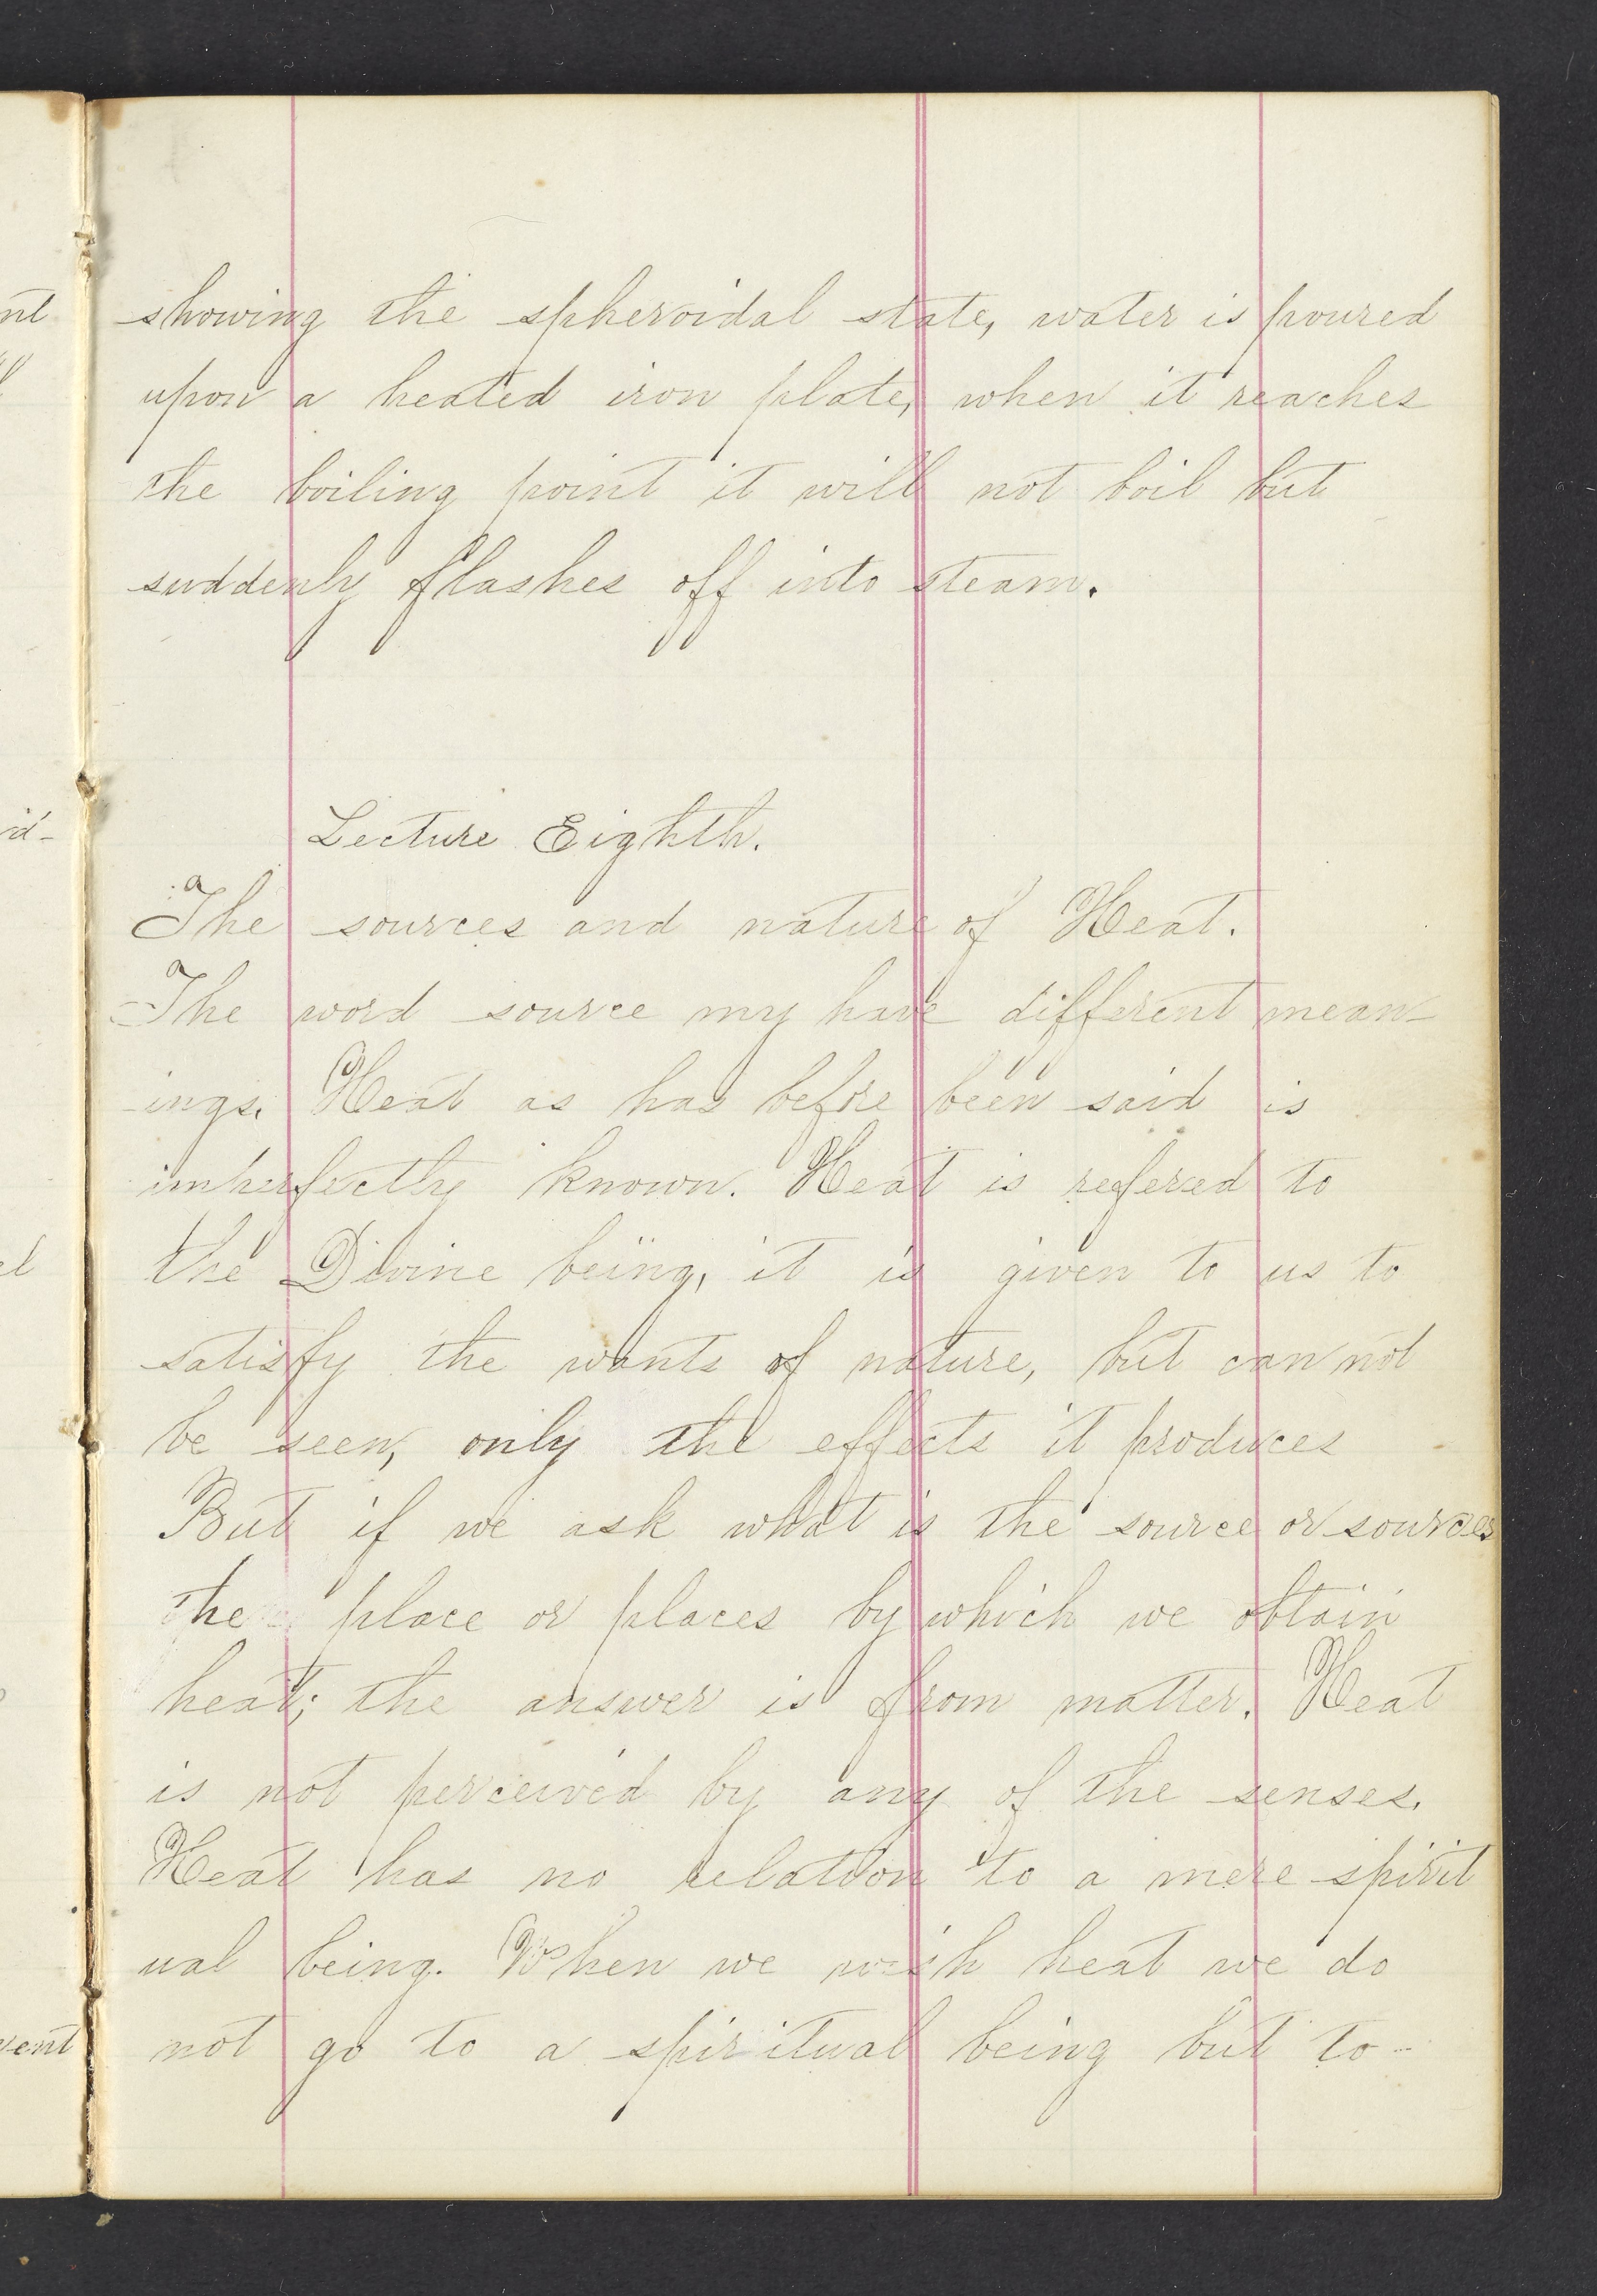 showing the spheroidal state, water is poured
upon a heated iron plate, when it reaches
the boiling point it will not boil but
suddenly flashes off into steam.
Lecture Eighth.
The sources and nature of Heat.
The word source my have different mean-
ings. Heat as has before been said is
imperfectly known. Heat is refered to
the Divine being, it is given to us to
satisfy the wants of nature, but can not
be seen, only the effects it produces
But if we ask what is the source or sources
the place or places by which we obtain
heat; the answer is from matter. Heat
is not perceived by any of the senses.
Heat has no relation to a mere spirit
ual being. When we wish heat we do
not go to a spiritual being but to-